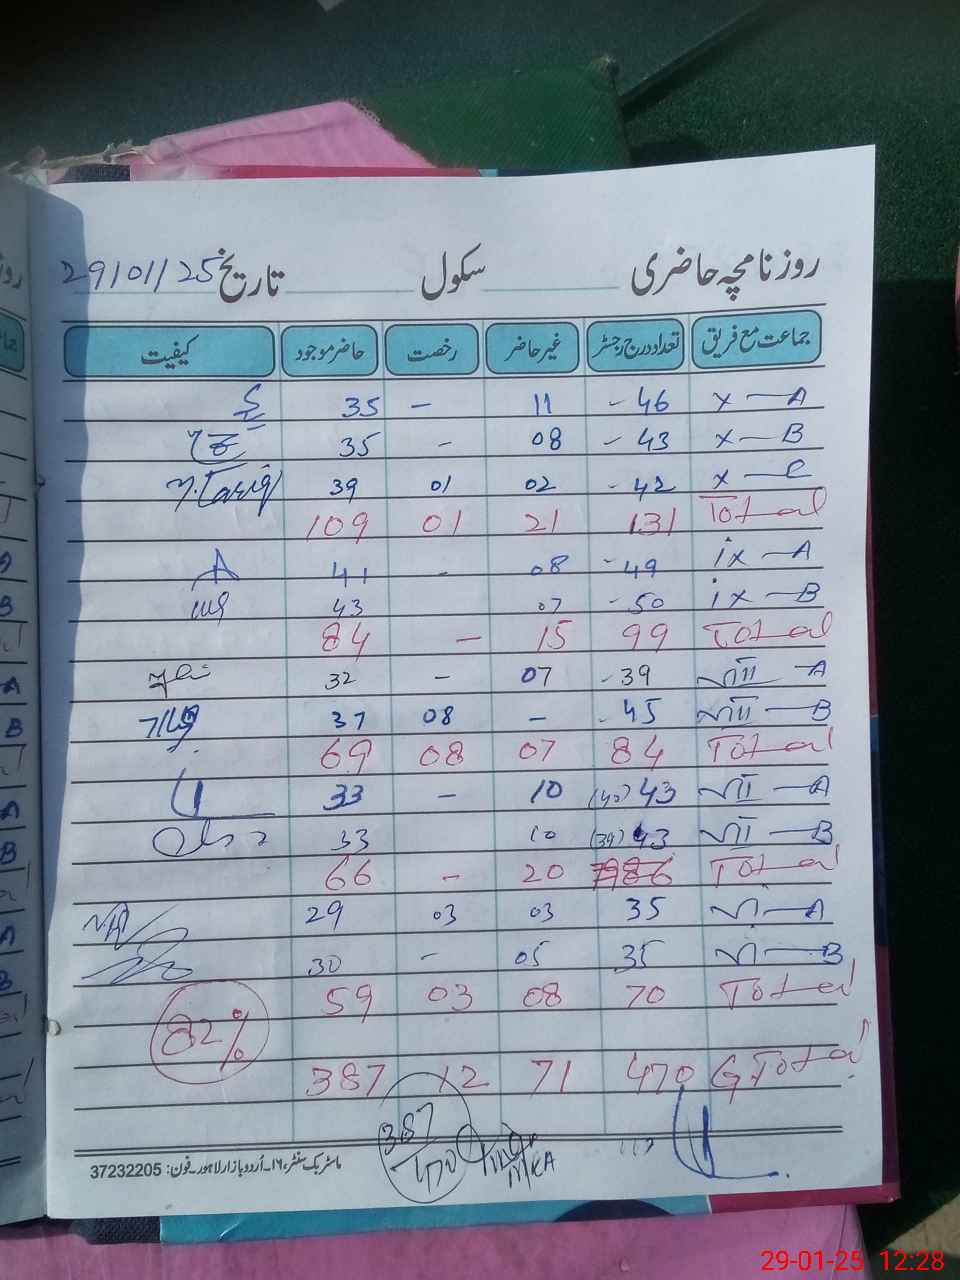 روزنامچہ حاضری سکول تاریخ 29/01/25
جماعت مع فریق تعداد درج رجسٹر غیر حاضر رخصت حاضر موجود کیفیت
X — A - 46 11 - 35
X — B - 43 08 - 35
X — C - 42 02 01 39
Total 131 21 01 109
ix — A - 49 08 - 41
ix — B - 50 07 43
Total 99 15 - 84
VIII — A - 39 07 - 32
VIII — B - 45 - 08 37
Total 84 07 08 69
VII — A 43 (40) 10 - 33
VII — B 43 (39) 10 33
Total 86 20 - 66
VI — A 35 03 03 29
VI — B 35 05 - 30
Total 70 08 03 59
82%
G Total 470 71 12 387
387/470
ماسٹر بک سنٹر، ۱۶-اُردو بازار لاہور-فون: 37232205
29-01-25 12:28